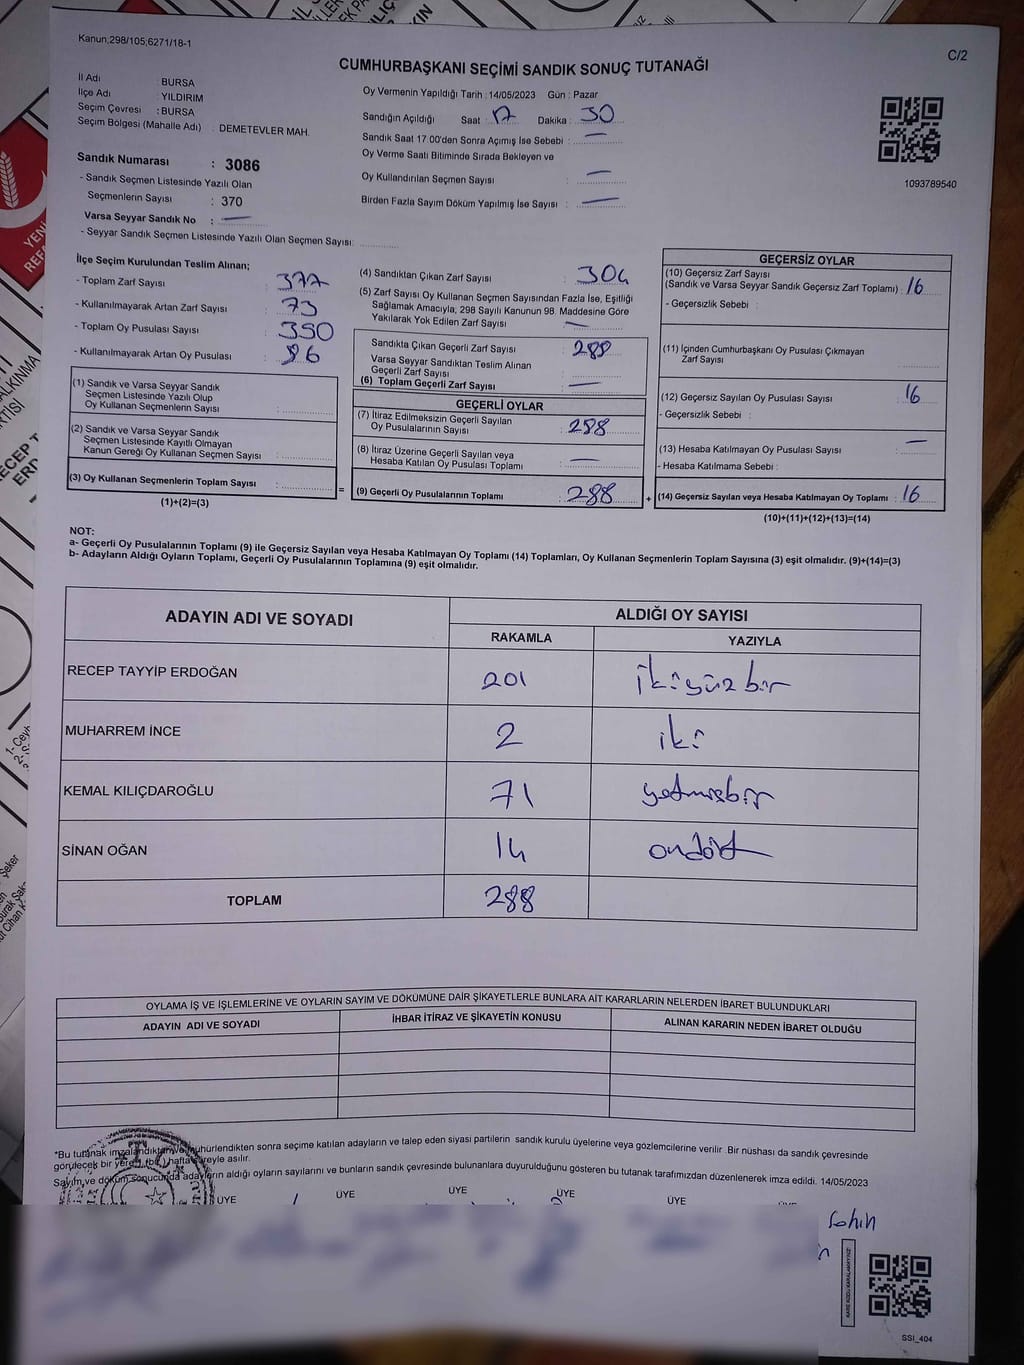 Kanun;298/105;6271/18-1
C/2
CUMHURBAŞKANI SEÇİMİ SANDIK SONUÇ TUTANAĞI
İl Adı : BURSA
İlçe Adı : YILDIRIM
Seçim Çevresi : BURSA
Seçim Bölgesi (Mahalle Adı) : DEMETEVLER MAH.
Sandık Numarası : 3086
- Sandık Seçmen Listesinde Yazılı Olan
Seçmenlerin Sayısı : 370
Varsa Seyyar Sandık No : —
- Seyyar Sandık Seçmen Listesinde Yazılı Olan Seçmen Sayısı:
Oy Vermenin Yapıldığı Tarih : 14/05/2023 Gün : Pazar
Sandığın Açıldığı Saat : 17 Dakika : 30
Sandık Saat 17:00'den Sonra Açımış İse Sebebi : —
Oy Verme Saati Bitiminde Sırada Bekleyen ve
Oy Kullandırılan Seçmen Sayısı : —
Birden Fazla Sayım Döküm Yapılmış İse Sayısı : —
1093789540
İlçe Seçim Kurulundan Teslim Alınan;
- Toplam Zarf Sayısı : 377
- Kullanılmayarak Artan Zarf Sayısı : 73
- Toplam Oy Pusulası Sayısı : 350
- Kullanılmayarak Artan Oy Pusulası : 86
(1) Sandık ve Varsa Seyyar Sandık
Seçmen Listesinde Yazılı Olup
Oy Kullanan Seçmenlerin Sayısı :
(2) Sandık ve Varsa Seyyar Sandık
Seçmen Listesinde Kayıtlı Olmayan
Kanun Gereği Oy Kullanan Seçmen Sayısı :
(3) Oy Kullanan Seçmenlerin Toplam Sayısı :
(1)+(2)=(3)
(4) Sandıktan Çıkan Zarf Sayısı : 304
(5) Zarf Sayısı Oy Kullanan Seçmen Sayısından Fazla İse, Eşitliği
Sağlamak Amacıyla, 298 Sayılı Kanunun 98. Maddesine Göre
Yakılarak Yok Edilen Zarf Sayısı : —
Sandıkta Çıkan Geçerli Zarf Sayısı : 288
Varsa Seyyar Sandıktan Teslim Alınan
Geçerli Zarf Sayısı :
(6) Toplam Geçerli Zarf Sayısı : —
GEÇERLİ OYLAR
(7) İtiraz Edilmeksizin Geçerli Sayılan
Oy Pusulalarının Sayısı : 288
(8) İtiraz Üzerine Geçerli Sayılan veya
Hesaba Katılan Oy Pusulası Toplamı : —
= (9) Geçerli Oy Pusulalarının Toplamı : 288 +
GEÇERSİZ OYLAR
(10) Geçersiz Zarf Sayısı
(Sandık ve Varsa Seyyar Sandık Geçersiz Zarf Toplamı) : 16
- Geçersizlik Sebebi :
(11) İçinden Cumhurbaşkanı Oy Pusulası Çıkmayan
Zarf Sayısı :
(12) Geçersiz Sayılan Oy Pusulası Sayısı : 16
- Geçersizlik Sebebi :
(13) Hesaba Katılmayan Oy Pusulası Sayısı : —
- Hesaba Katılmama Sebebi :
(14) Geçersiz Sayılan veya Hesaba Katılmayan Oy Toplamı : 16
(10)+(11)+(12)+(13)=(14)
NOT:
a- Geçerli Oy Pusulalarının Toplamı (9) ile Geçersiz Sayılan veya Hesaba Katılmayan Oy Toplamı (14) Toplamları, Oy Kullanan Seçmenlerin Toplam Sayısına (3) eşit olmalıdır. (9)+(14)=(3)
b- Adayların Aldığı Oyların Toplamı, Geçerli Oy Pusulalarının Toplamına (9) eşit olmalıdır.
ADAYIN ADI VE SOYADI ALDIĞI OY SAYISI
RAKAMLA YAZIYLA
RECEP TAYYİP ERDOĞAN 201 ikiyüzbir
MUHARREM İNCE 2 iki
KEMAL KILIÇDAROĞLU 71 yetmişbir
SİNAN OĞAN 14 ondört
TOPLAM 288
OYLAMA İŞ VE İŞLEMLERİNE VE OYLARIN SAYIM VE DÖKÜMÜNE DAİR ŞİKAYETLERLE BUNLARA AİT KARARLARIN NELERDEN İBARET BULUNDUKLARI
ADAYIN ADI VE SOYADI İHBAR İTİRAZ VE ŞİKAYETİN KONUSU ALINAN KARARIN NEDEN İBARET OLDUĞU
*Bu tutanak imzalandıktan ve mühürlendikten sonra seçime katılan adayların ve talep eden siyasi partilerin sandık kurulu üyelerine veya gözlemcilerine verilir. Bir nüshası da sandık çevresinde
görülecek bir yere bir hafta süreyle asılır.
Sayım ve döküm sonucunda adayların aldığı oyların sayılarını ve bunların sandık çevresinde bulunanlara duyurulduğunu gösteren bu tutanak tarafımızdan düzenlenerek imza edildi. 14/05/2023
ÜYE ÜYE ÜYE ÜYE ÜYE
SSI_404